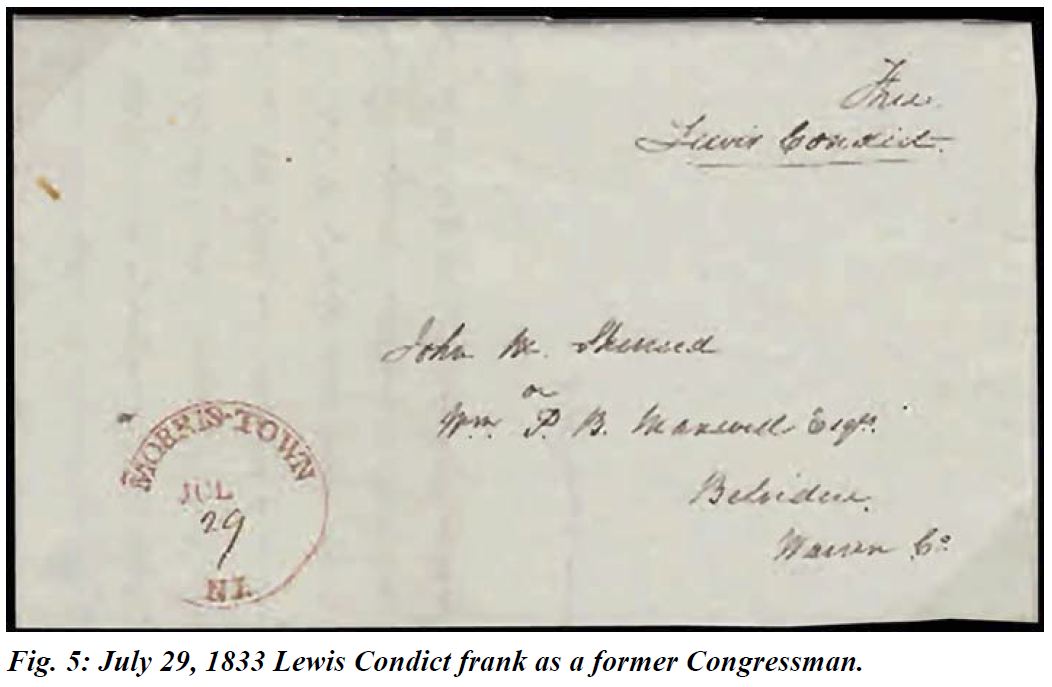 Free.
Lewis Condict.
John M. Sherrerd
or
Wm. P. B. Maxwell Esqs.
Belvidere.
Warren Co
MORRIS-TOWN
JUL
29
N.J.
Fig. 5: July 29, 1833 Lewis Condict frank as a former Congressman.